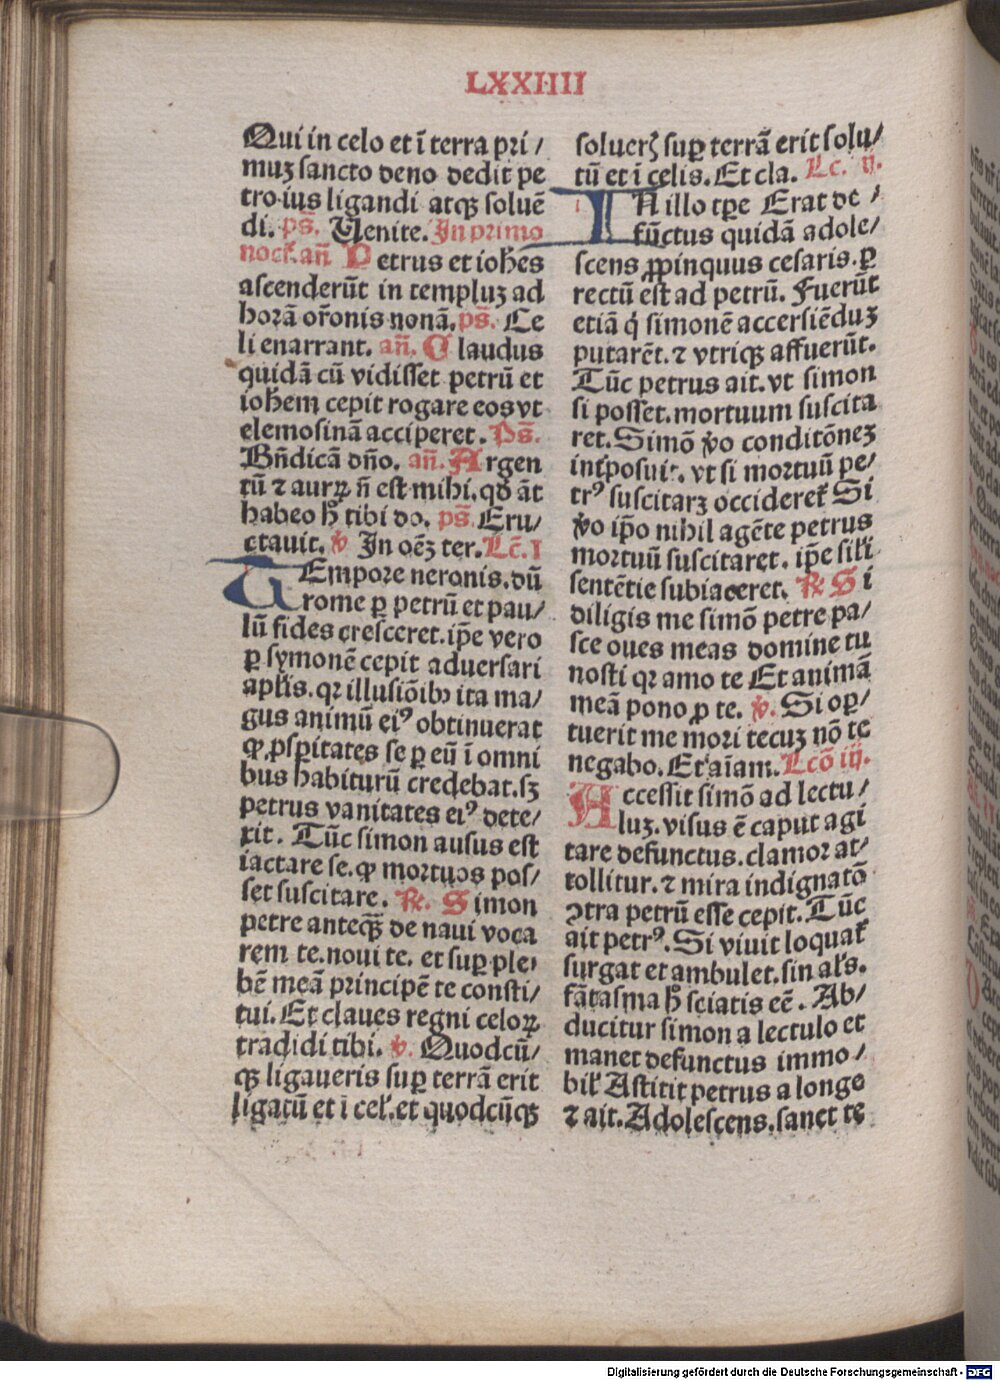 LXXIIII
Qui in celo et ī terra pri/
muȝ sancto deno dedit pe
tro ius ligandi atqꝫ soluē
di. ps̄. Uenite. In primo
nocť. añ Petrus et ioħes
ascenderūt in templuȝ ad
horā or̄onis nonā. ps̄. Ce
li enarrant. añ. Claudus
quidā cū vidisset petrū et
ioħem cepit rogare eos vt
elemosinā acciperet. Ps̄.
Bn̄dicā dn̄o. añ. Argen
tū ⁊ aurꝝ n̄ est mihi. qđ āt
habeo ħ tibi do. ps̄. Eru/
ctauit. ℣ In oēȝ ter. Lc̄. I
TEmpore neronis. dū
rome ꝑ petrū et pau/
lū fides cresceret. ip̄e vero
ꝑ symonē cepit aduersari
apl̄is. qꝛ illusiōibꝫ ita ma/
gus animū eiꝰ obtinuerat
ꝙ ꝓsꝑitates se ꝑ eū ī omni
bus habiturū credebat. sȝ
petrus vanitates eiꝰ dete/
xit. Tūc simon ausus est
iactare se. ꝙ mortuos pos/
set suscitare. ℟. Simon
petre anteqꝫ̄ de naui voca
rem te. noui te. et suꝑ ple/
bē meā principē te consti/
tui. Et claues regni celoꝝ
tradidi tibi. ℣. Quodcū/
qꝫ ligaueris suꝑ terrā erit
ligatū et ī cel̉. et quodcūqꝫ
solueꝛꝭ suꝑ terrā erit solu/
tū et ī celis. Et cla. Lc. ij.
IN illo tꝑe Erat de/
fūctus quidā adole/
scens ꝓpinquus cesaris. ꝑ
rectū est ad petrū. Fuerūt
etiā q̇ simonē accersiēduȝ
putarēt. ⁊ vtriqꝫ affuerūt.
Tūc petrus ait. vt simon
si posset. mortuum suscita
ret. Simō ꝟo conditōneȝ
int̉posuit. vt si mortuū pe/
trꝰ suscitarȝ occidereť Si
ꝟo ip̄o nihil agēte petrus
mortuū suscitaret. ip̄e sil̄i
sentētie subiaceret. ℟ Si
diligis me simō petre pa/
sce oues meas domine tu
nosti qꝛ amo te Et animā
meā pono ꝓ te. ℣. Si oꝑ/
tuerit me mori tecuȝ nō te
negabo. Et aīam. Lcō iij.
ACcessit simō ad lectu/
luȝ. visus ē caput agi
tare defunctus. clamor at/
tollitur. ⁊ mira indignatō
ↄtra petrū esse cepit. Tūc
ait petrꝰ. Si viuit loquať
surgat et ambulet. sin al̉s.
fātasma ħ sciatis eē. Ab/
ducitur simon a lectulo et
manet defunctus immo/
bil̉ Astitit petrus a longe
⁊ ait. Adolescens. sanct te
Digitalisierung gefördert durch die Deutsche Forschungsgemeinschaft - DFG